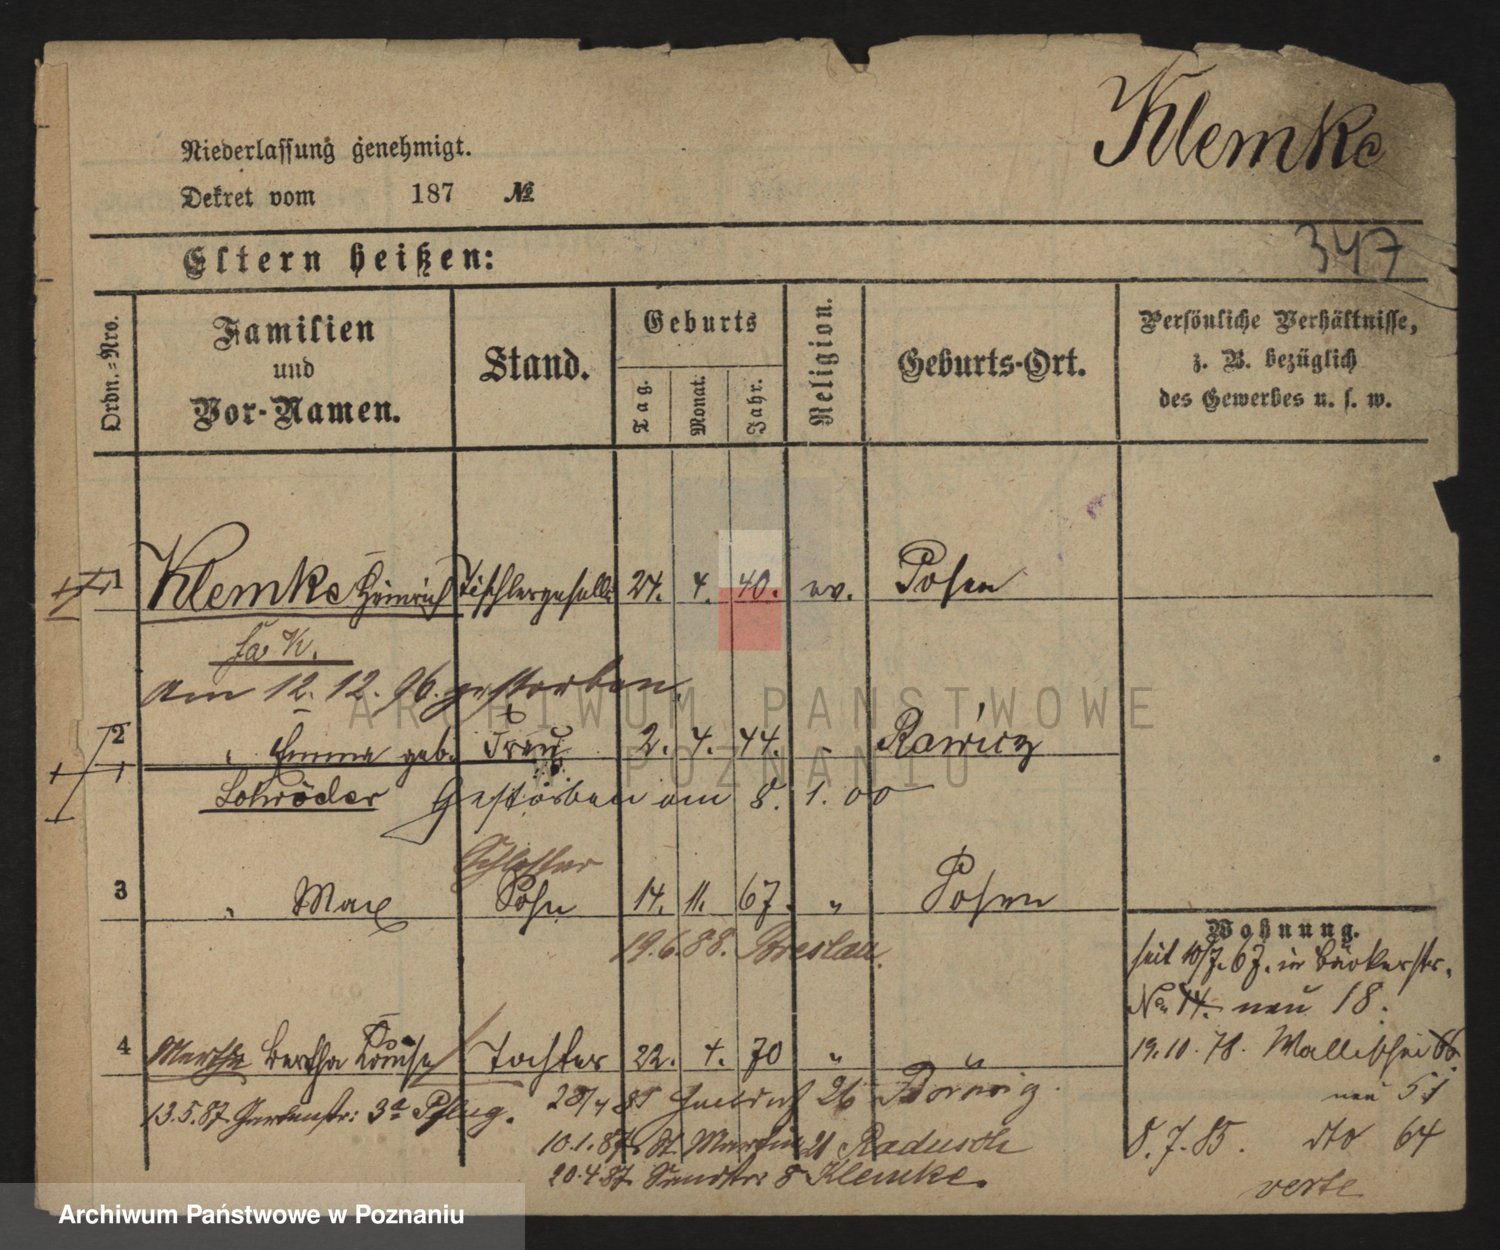 Klemke
Niederlassung genehmigt.
Dekret vom 187 №
347
Eltern heißen:
Ordn.-Nro.
Familien
und
Vor-Namen.
Stand.
Geburts
Tag.
Monat.
Jahr.
Religion.
Geburts-Ort.
Persönliche Verhältnisse,
z. B. bezüglich
des Gewerbes u. s. w.
1 Klemke Heinrich Tischlergeselle 24. 4. 40. ev. Posen
am 12. 12. 96. gestorben.
2 " Emma geb. Frau 2. 4. 44. " Rawicz
Schröder Gestorben am 8. 1. 00
Schlosser
3 " Max Sohn 14. 11. 67. " Posen
19.6.88. Breslau.
Wohnung.
seit 10/7. 67. in Bäckerstr.
No 14. neu 18.
4 Martha Bertha Louise Tochter 22. 4. 70 " "
19.10.78. Wallischei
neu 51
13.5.87. Gartenstr: 3a Pflug.
28/4 85 26
8.7.85. dto 64
10.1.87. St. Martin 21 Radusch
20.4.87. 8 Klemke.
verte
ARCHIWUM PAŃSTWOWE
W POZNANIU
Archiwum Państwowe w Poznaniu